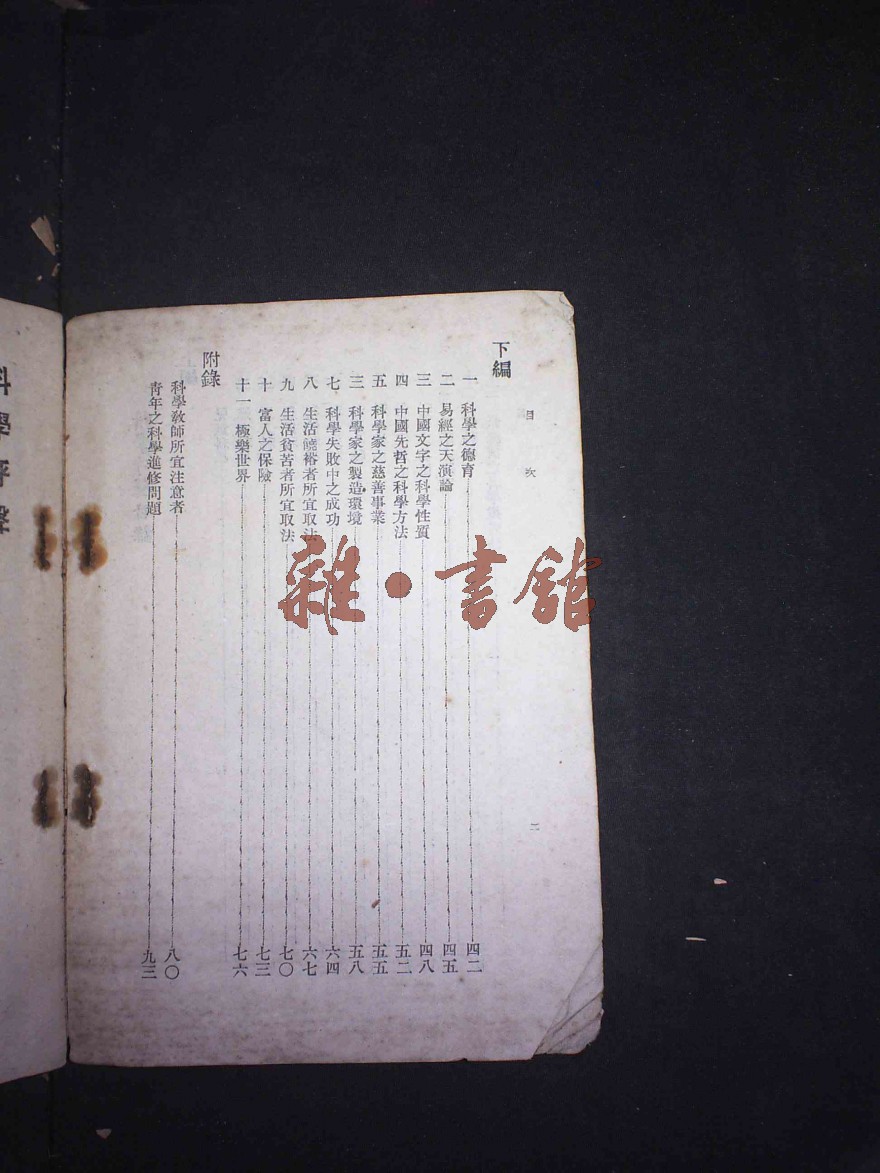 目次
二
下編
一 科學之德育 四二
二 易經之天演論 四五
三 中國文字之科學性質 四八
四 中國先哲之科學方法 五二
五 科學家之慈善事業 五五
三 科學家之製造環境 五八
七 科學失敗中之成功 六四
八 生活饒裕者所宜取法 六七
九 生活貧苦者所宜取法 七〇
十 富人之保險 七三
十一 極樂世界 七六
附錄
科學教師所宜注意者 八〇
青年之科學進修問題 九三
科學
雜·書館